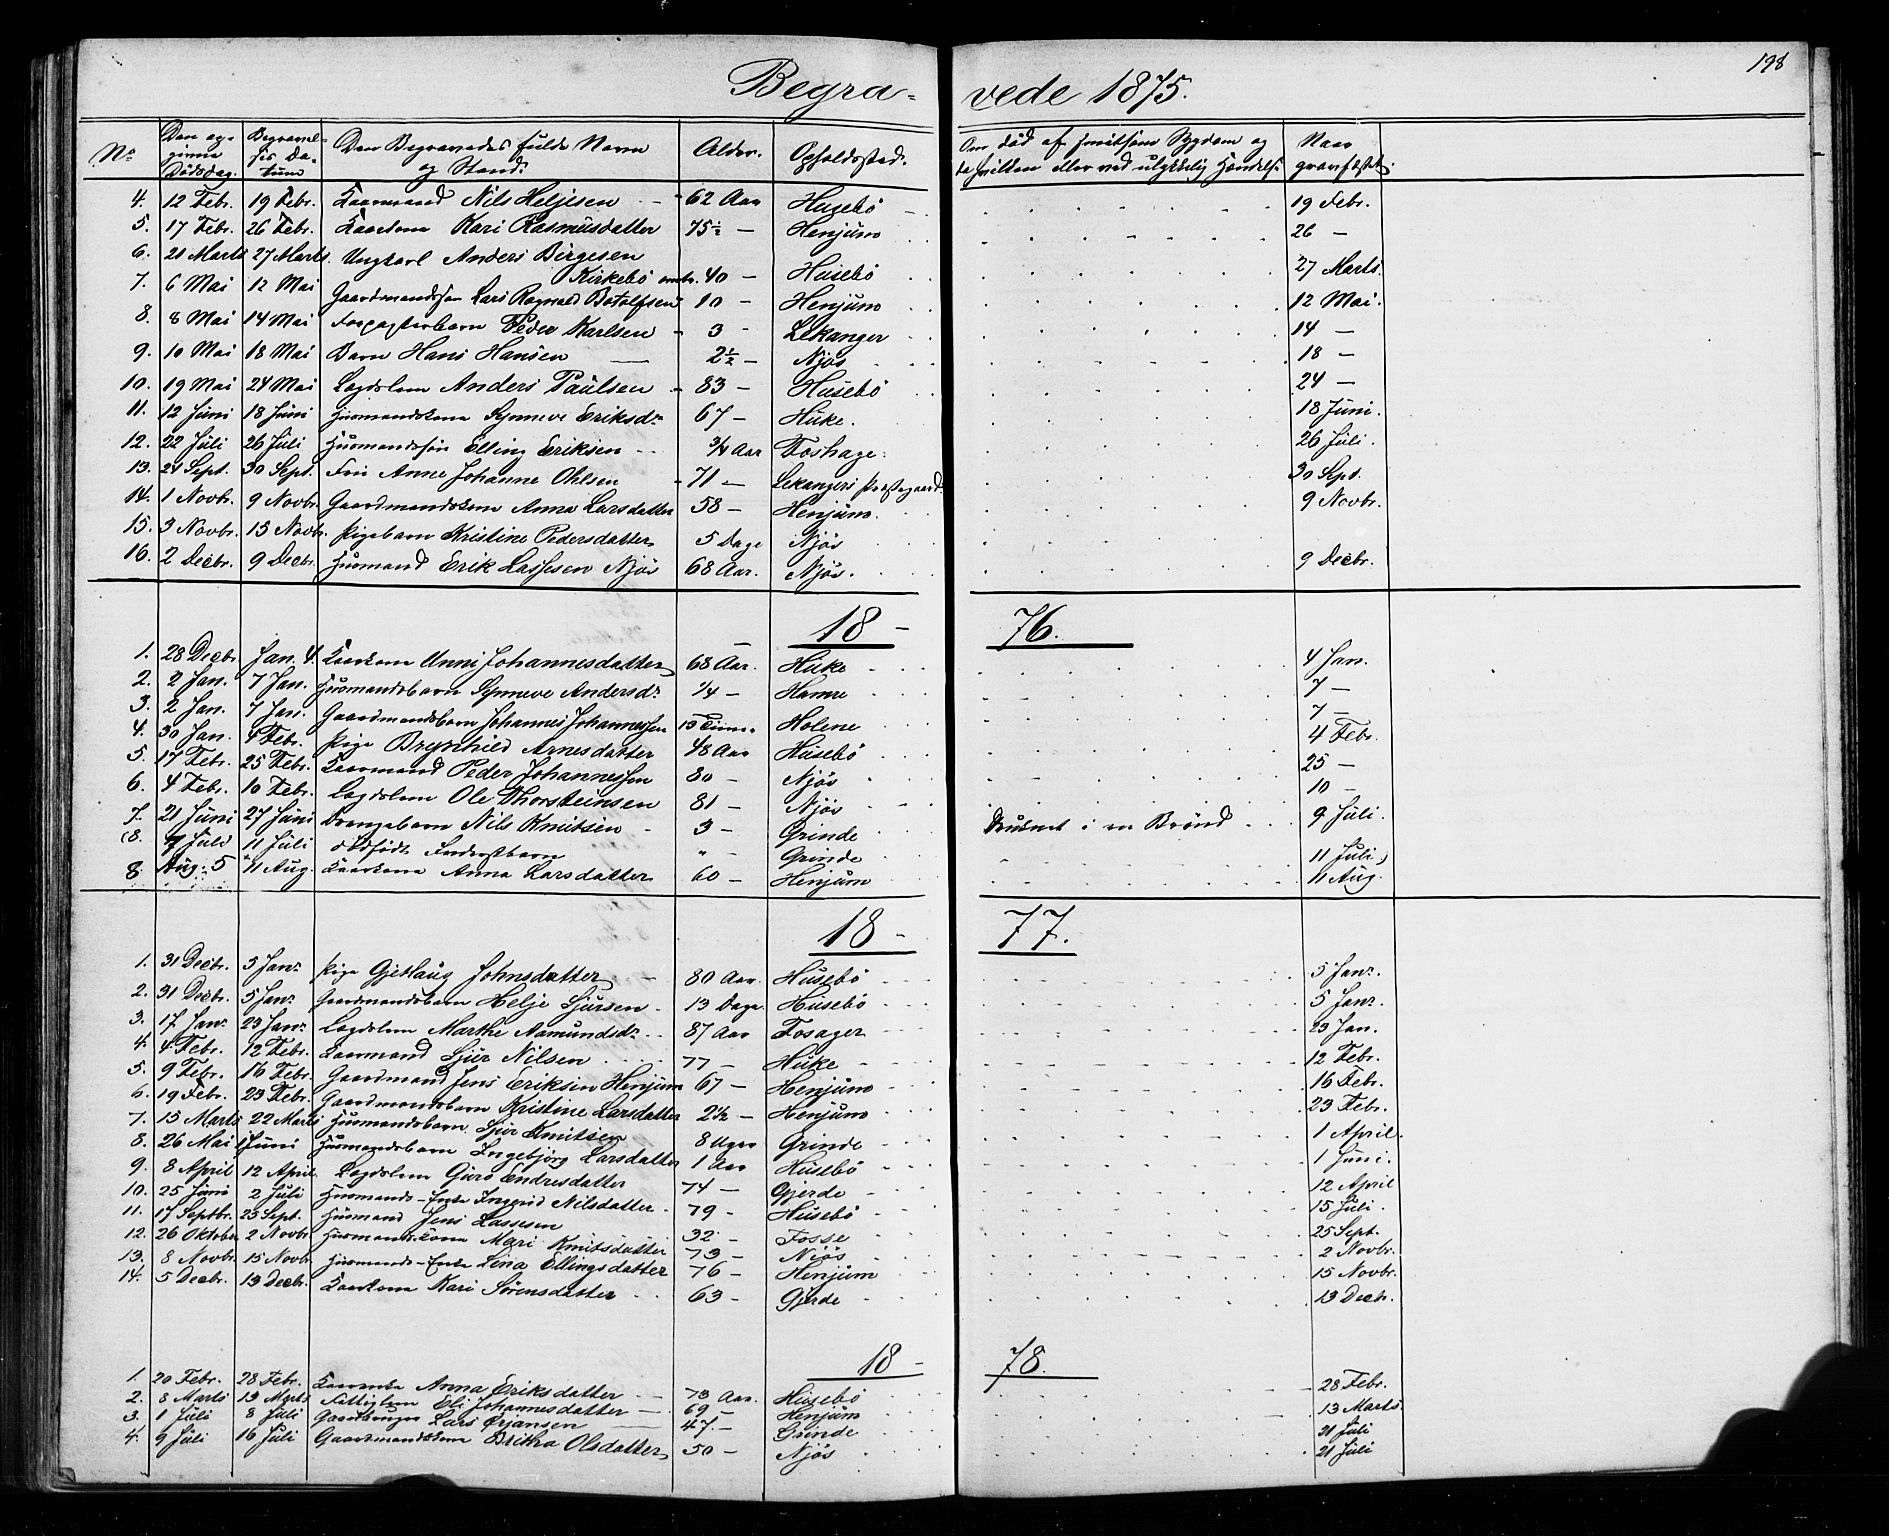 198
Begravede 1875.
No | Den opgivne Dødsdag. | Begravelses Datum | Den Begravedes fulde Navn og Stand. | Alder. | Opholdssted. | Om død af smitsom Sygdom og da hvilken eller ved ulykkelig Hændelse | Naar gravfæstet.
4. 12 Febr. 19 Febr. Kaarmand Nils Heljesen 62 Aar Husebö 19 Febr.
5. 17 Febr. 26 Febr. Kaarkona Kari Rasmusdatter 75½ — Henjum 26 —
6. 21 Marts 27 Marts. Ungkarl Anders Birgesen Kirkebö omtr. 40 — Husebö 27 Marts.
7. 6 Mai 12 Mai Gaardmandssøn Lars Ragnald Botolfsen 10 — Henjum 12 Mai.
8. 8 Mai 14 Mai Forpagterbarn Peder Karlsen 3 — Lekanger 14 —
9. 10 Mai 18 Mai Barn Hans Hansen 2½ — Njøs 18 —
10. 19 Mai 24 Mai Lægdslem Anders Paulsen 83 — Husebö 24 —
11. 12 Juni 18 Juni Husmandskona Synneve Eriksdr 67 — Huke. 18 Juni.
12. 22 Juli 26 Juli Husmandssøn Elling Eriksen 3/4 Aar Foshage. 26 Juli.
13. 24 Sept. 30 Sept. Fru Anne Johanne Ohlsen 71 — Lekangers præstegaard. 30 Sept.
14. 1 Novbr. 9 Novbr. Gaardmandskona Anna Larsdatter 58 — Henjum. 9 Novbr.
15. 3 Novbr. 13 Novbr. Pigebarn Kristine Pedersdatter 5 Dage Njøs
16. 2 Decbr. 9 Decbr. Husmand Erik Lassesen Njøs 68 Aar. Njøs. 9 Decbr.
18 — 76.
1. 28 Decbr. Jan. 4. Kaarkona Unni Johannesdatter 68 Aar. Huke 4 Jan.
2. 2 Jan. 7 Jan. Husmandsbarn Synneve Andersdr 1/4 — Hamre 7 —
3. 2 Jan. 7 Jan. Gaardmandsbarn Johannes Johannessen 15 Time. Holene 7 —
4. 30 Jan. 4 Febr. Pige Brynhild Arnesdatter 48 Aar Husebö 4 Febr.
5. 17 Febr. 25 Febr. Kaarmand Peder Johannessen 80 — Njøs 25 —
6. 4 Febr. 10 Febr. Lægdslem Ole Thorsteinsen 81 — Njøs 10 —
7. 21 Juni 27 Juni Drengebarn Nils Knutsen 3 — Grinde Druknet i en Brönd 9 Juli.
(8. 7 Juli 11 Juli dødfødt Grinde 11 Juli)
8 Aug. 5 11 Aug. Kaarkona Anna Larsdatter 60 — Henjum 11 Aug.
18 — 77.
1. 31 Decbr. 5 Janr Pige Gjertlaug Johnsdatter 80 Aar. Husebö 5 Janr.
2. 31 Decbr. 5 Janr Gaardmandsbarn Helje Sjursen 13 Dage Husebö 5 Janr.
3. 17 Janr 23 Janr Lægdslem Marthe Aamundsdr 87 Aar Fosager 23 Jan.
4. 4 Febr. 12 Febr. Kaarmand Sjur Nilsen 77 — Huke 12 Febr.
5. 9 Febr. 16 Febr. Gaardmand Jens Eriksen Henjum 67 — Henjum 16 Febr.
6. 19 Febr. 23 Febr. Gaardmandsbarn Kristine Larsdatter 2½ — Henjum 23 Febr.
7. 15 Marts 22 Marts Husmandsbarn Sjur Knutsen 8 Uger Grinde 1 April.
8. 26 Mai 1 Juni Husmandsbarn Ingebjørg Larsdatter 1 Aar Husebö 1 Juni.
9. 8 April 12 April. Lægdslem Guro Endresdatter 74 — Gjerde 12 April
10. 25 Juni 2 Juli Husmands-Enke Ingerid Nilsdatter 79 — Husebö 15 Juli.
11. 17 Septbr. 23 Sept. Husmand Jens Lassesen 32 — Fosse 25 Sept.
12. 26 Oktober 2 Novbr. Husmandskona Mari Knutsdatter 73 — Njøs 2 Novbr.
13. 8 Novbr. 15 Novbr. Husmands-Enke Lina Ellingsdatter 76 — Henjum 15 Novbr.
14. 5 Decbr. 13 Decbr. Kaarkona Kari Sørensdatter 63 — Gjerde 13 Decbr.
18 — 78.
1. 20 Febr. 28 Febr. Kaarenke Anna Eriksdatter 73 Aar. Husebö 28 Febr.
2. 8 Marts 13 Marts Fattiglem Eli Johannesdatter 69 — Henjum 13 Marts.
3. 1 Juli 8 Juli Lars Ørjansen 47 — Grinde 21 Juli
4. 9 Juli 16 Juli Gaardmandskona Britha Olsdatter 50 — Njøs 21 Juli